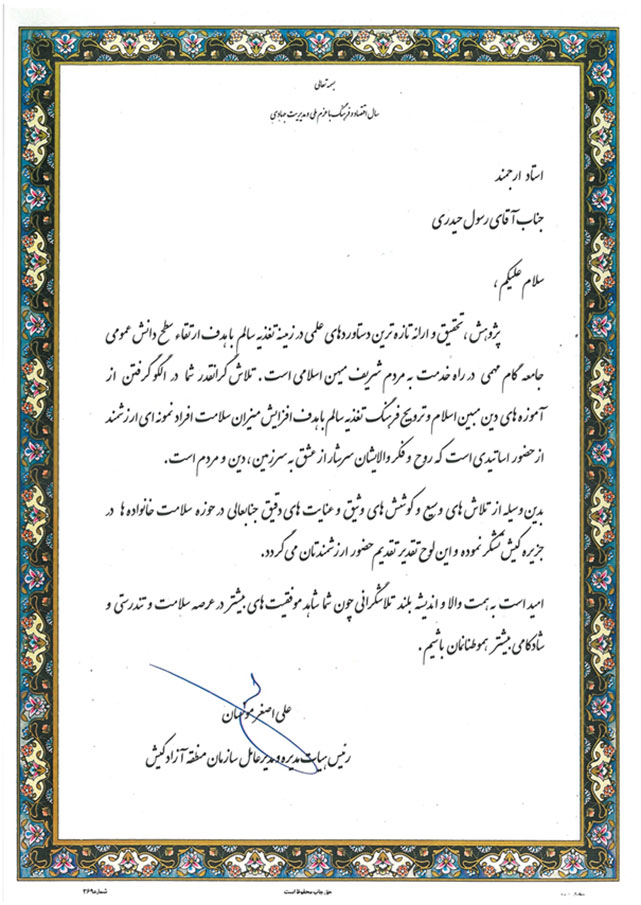 بسمه تعالی
سال اقتصاد و فرهنگ با عزم ملی و مدیریت جهادی
استاد ارجمند
جناب آقای رسول حیدری
سلام علیکم ،
پژوهش ، تحقیق و ارائه تازه ترین دستاوردهای علمی در زمینه تغذیه سالم با هدف ارتقاء سطح دانش عمومی
جامعه گام مهمی در راه خدمت به مردم شریف میهن اسلامی است . تلاش گرانقدر شما در الگو گرفتن از
آموزه های دین مبین اسلام و ترویج فرهنگ تغذیه سالم با هدف افزایش میزان سلامت افراد نمونه ای ارزشمند
از حضور اساتیدی است که روح و فکر والایشان سرشار از عشق به سرزمین ، دین و مردم است.
بدین وسیله از تلاش های وسیع و کوشش های وثیق و عنایت های دقیق جنابعالی در حوزه سلامت خانواده ها در
جزیره کیش تشکر نموده و این لوح تقدیر تقدیم حضور ارزشمندتان می گردد.
امید است به همت والا و اندیشه بلند تلاشگرانی چون شما شاهد موفقیت های بیشتر در عرصه سلامت و تندرستی و
شادکامی بیشتر هموطنانمان باشیم .
علی اصغر مونسان
رئیس هیات مدیره و مدیرعامل سازمان منطقه آزاد کیش
حق چاپ محفوظ است
شماره ۲۶۹